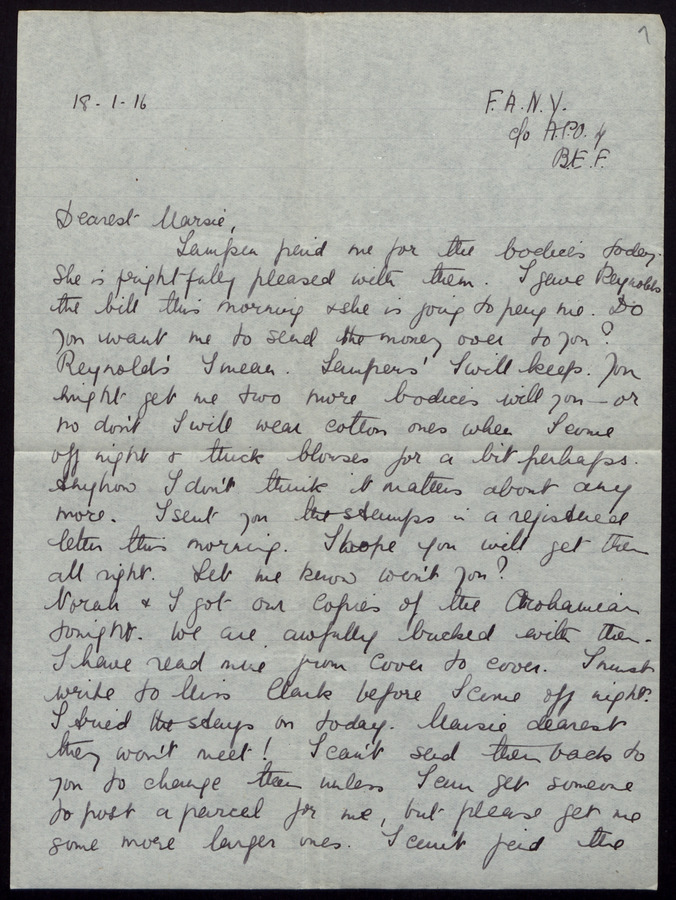 7
18-1-16
F.A.N.Y.
c/o A.P.O. 4
B.E.F.
Dearest Marsie,
Lampen paid me for the bodices today.
She is frightfully pleased with them. I gave Reynolds
the bill this morning & she is going to pay me. Do
you want me to send the money over to you?
Reynolds' I mean. Lampens' I will keep. You
might get me two more bodices will you — or
no don't I will wear cotton ones when I come
off night & thick blouses for a bit perhaps.
Anyhow I don't think it matters about any
more. I sent you the stamps in a registered
letter this morning. I hope you will get them
all right. Let me know won't you?
Norah & I got our copies of the
tonight. We are awfully bucked with them.
I have read mine from cover to cover. I must
write to Miss Clark before I come off night.
I tried the stays on today. Marsie dearest
they won't meet! I can't send them back to
you to change them unless I can get someone
to post a parcel for me, but please get me
some more larger ones. I can't find the